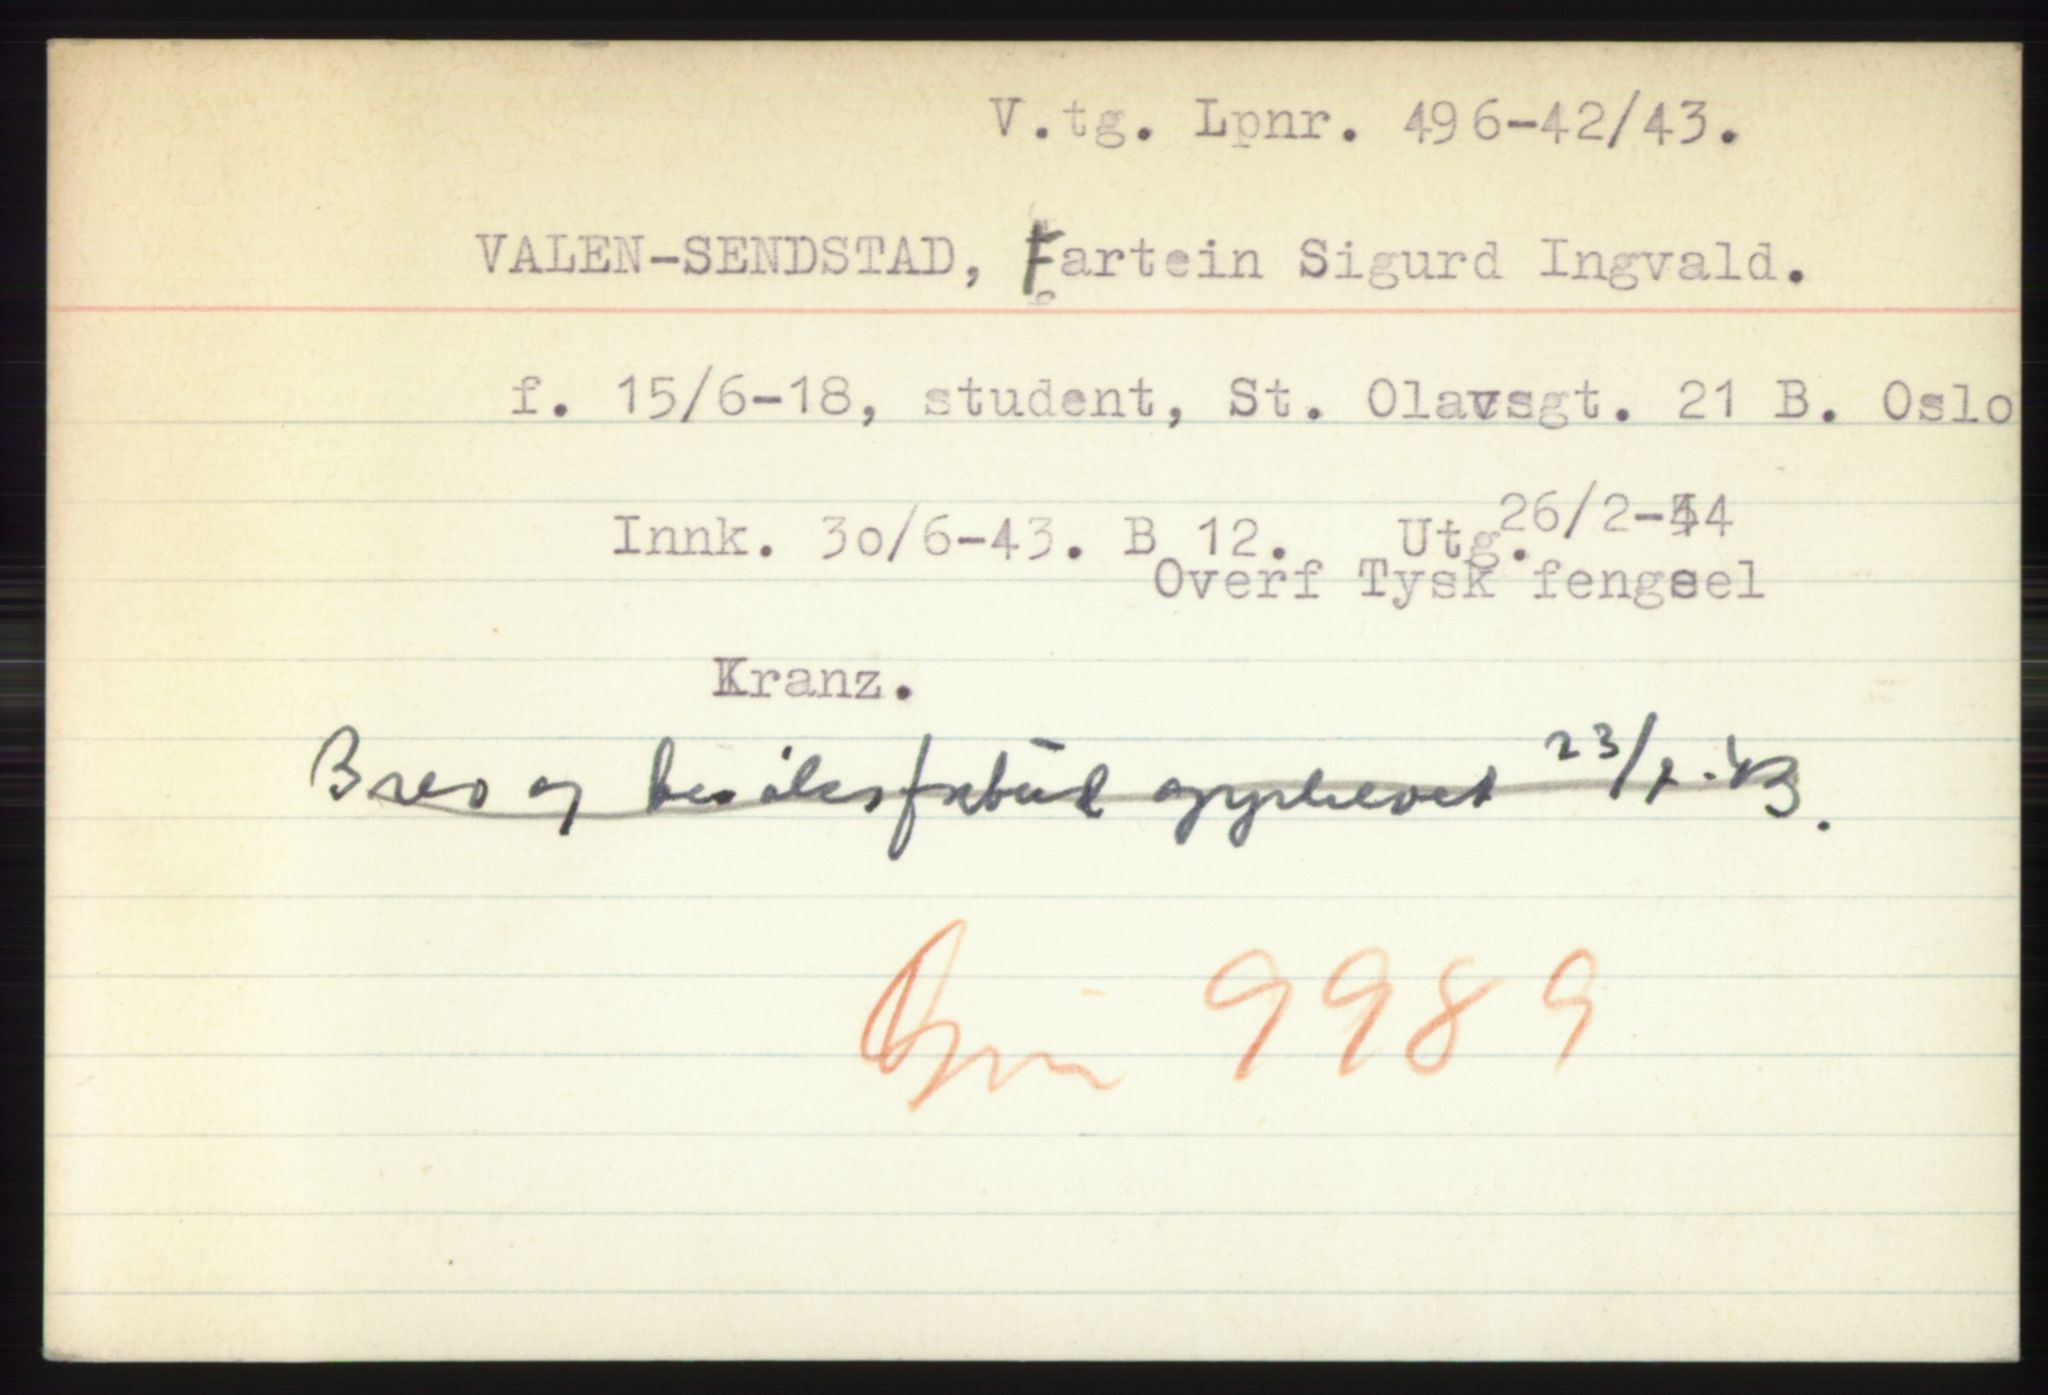 V.tg. Lpnr. 496-42/43.
VALEN-SENDSTAD, Fartein Sigurd Ingvald.
f. 15/6-18, student, St. Olavsgt. 21 B. Oslo
Innk. 30/6-43. B 12. Utg. 26/2-44
Overf Tysk fengsel
Kranz.
Brev og besøksforbud opphevet 23/7-43.
9989